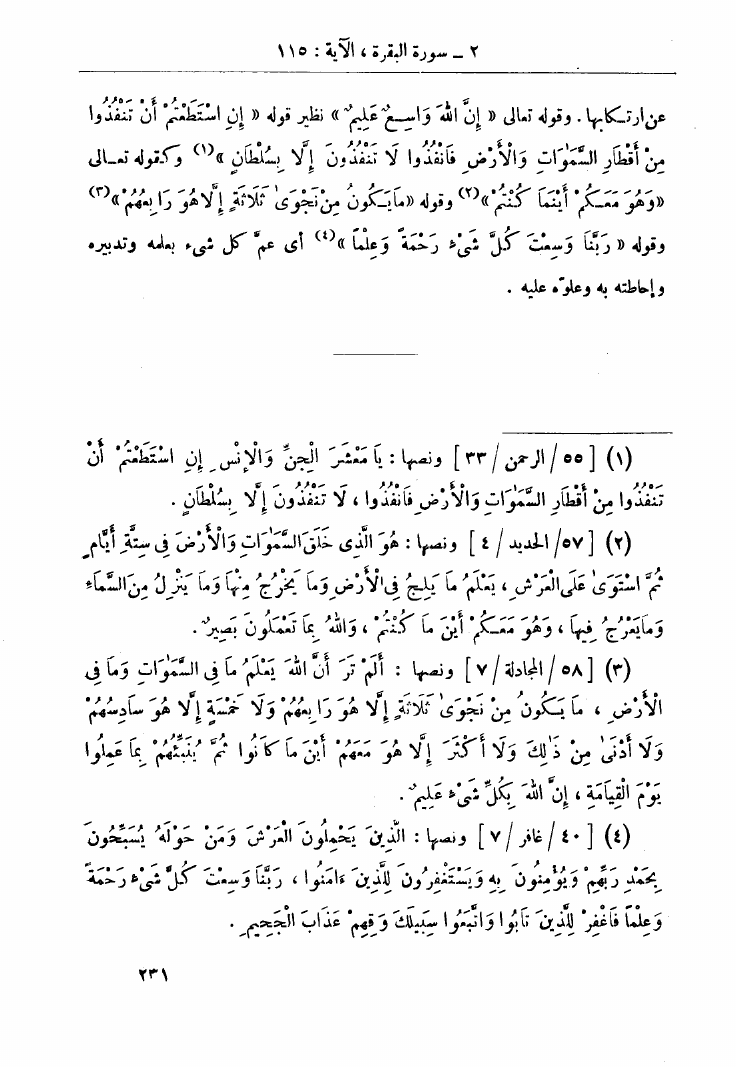 ٢ ــ سورة البقرة ، الآية : ١١٥
عن ارتـكابها . وقوله تعالى « إِنَّ اللهَ وَاسِـعٌ عَلِيمٌ » نظير قوله « إِنِ اسْتَطَعْتُمْ أَنْ تَنْفُذُوا
مِنْ أَقْطَارِ السَّمٰوَاتِ وَالْأَرْضِ فَانْفُذُوا لَا تَنْفُذُونَ إِلَّا بِسُلْطَانٍ »(١) وكـقوله تعـالى
«وَهُوَ مَعَـكُمْ أَيْنَمَا كُنْتُمْ»(٢) وقوله «مَايَـكُونُ مِنْ نَجْوَىٰ ثَلَاثَةٍ إِلَّا هُوَ رَابِعُهُمْ»(٣)
وقوله « رَبَّنَا وَسِعْتَ كُلَّ شَىْءٍ رَحْمَةً وَعِلْماً »(٤) أى عمَّ كل شىء بعلمه وتدبيره
وإحاطته به وعلوّه عليه .
(١) [ ٥٥ / الرحمن / ٣٣ ] ونصها : يَا مَعْشَرَ الْجِنِّ وَالْإِنْسِ إِنِ اسْتَطَعْتُمْ أَنْ
تَنْفُذُوا مِنْ أَقْطَارِ السَّمٰوَاتِ وَالْأَرْضِ فَانْفُذُوا ، لَا تَنْفُذُونَ إِلَّا بِسُلْطَانٍ .
(٢) [ ٥٧/ الحديد / ٤ ] ونصها : هُوَ الَّذِى خَلَقَ السَّمٰوَاتِ وَالْأَرْضَ فِى سِتَّةِ أَيَّامٍ
ثُمَّ اسْتَوَىٰ عَلَى الْعَرْشِ ، يَعْلَمُ مَا يَلِجُ فِى الْأَرْضِ وَمَا يَخْرُجُ مِنْهَا وَمَا يَنْزِلُ مِنَ السَّمَاءِ
وَمَايَعْرُجُ فِيهَا ، وَهُوَ مَعَـكُمْ أَيْنَ مَا كُنْتُمْ ، وَاللهُ بِمَا تَعْمَلُونَ بَصِيرٌ .
(٣) [ ٥٨ / المجادلة / ٧ ] ونصها : أَلَمْ تَرَ أَنَّ اللهَ يَعْلَمُ مَا فِى السَّمٰوَاتِ وَمَا فِى
الْأَرْضِ ، مَا يَـكُونُ مِنْ نَجْوَىٰ ثَلَاثَةٍ إِلَّا هُوَ رَابِعُهُمْ وَلَا خَمْسَةٍ إِلَّا هُوَ سَادِسُهُمْ
وَلَا أَدْنَىٰ مِنْ ذٰلِكَ وَلَا أَكْثَرَ إِلَّا هُوَ مَعَهُمْ أَيْنَ مَا كَانُوا ثُمَّ يُنَبِّئُهُمْ بِمَا عَمِلُوا
يَوْمَ الْقِيَامَةِ ، إِنَّ اللهَ بِكُلِّ شَىْءٍ عَلِيمٌ .
(٤) [ ٤٠ / غافر / ٧ ] ونصها : الَّذِينَ يَحْمِلُونَ الْعَرْشَ وَمَنْ حَوْلَهُ يُسَبِّحُونَ
بِحَمْدِ رَبِّهِمْ وَيُؤْمِنُونَ بِهِ وَيَسْتَغْفِرُونَ لِلَّذِينَ ءَامَنُوا ، رَبَّنَا وَسِعْتَ كُلَّ شَىْءٍ رَحْمَةً
وَعِلْماً فَاغْفِرْ لِلَّذِينَ تَابُوا وَاتَّبَعُوا سَبِيلَكَ وَقِهِمْ عَذَابَ الْجَحِيمِ .
٢٣١